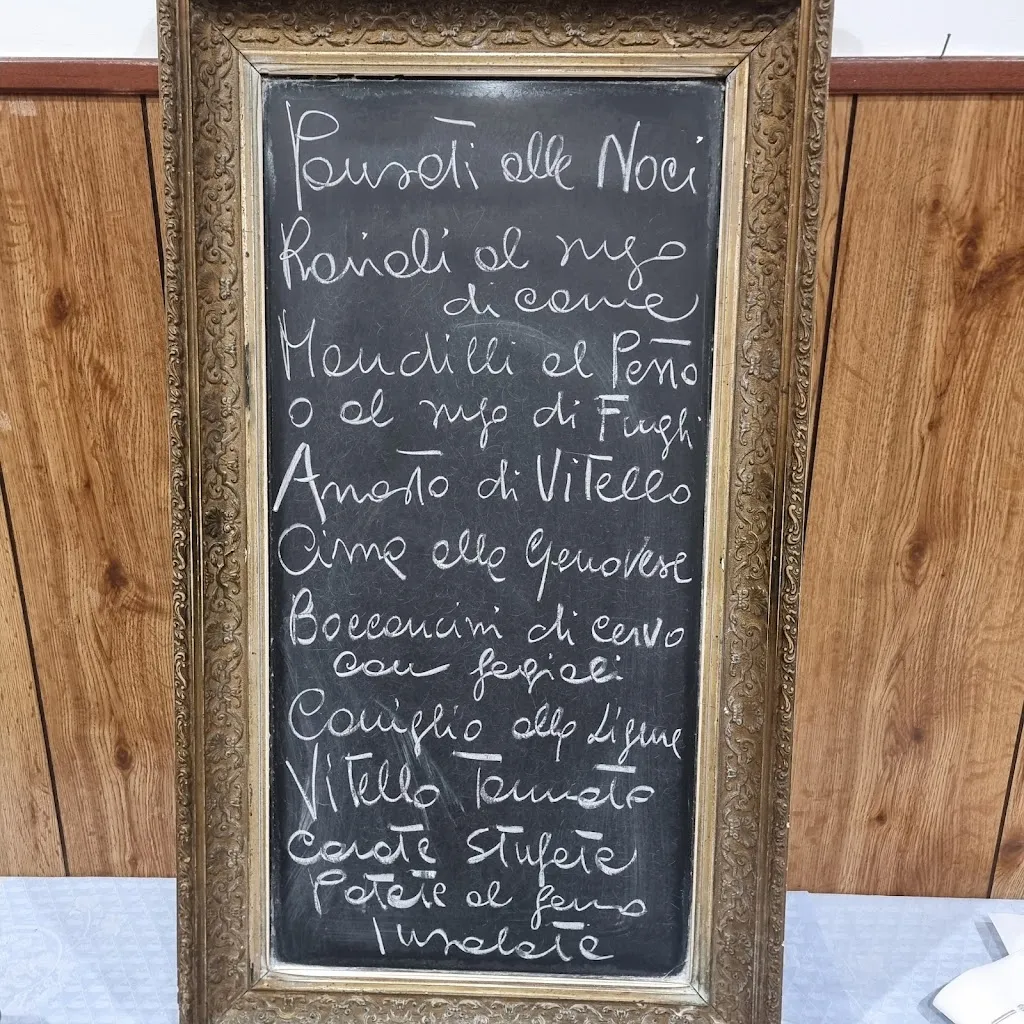 Pansoti alle Noci
Ravioli al sugo
di carne
Mandilli al Pesto
o al sugo di Funghi
Arrosto di Vitello
Cima alla Genovese
Bocconcini di cervo
con fagioli
Coniglio alla Ligure
Vitello Tonnato
Carote Stufate
Patate al forno
Insalate